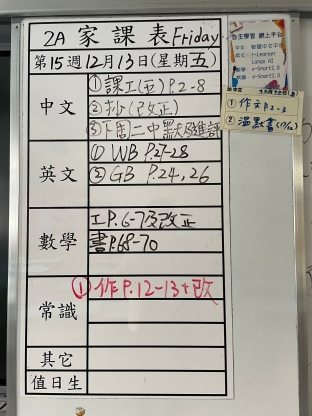 2A 家課表 Friday
第15週12月13日(星期五)
中文
①課工(五) P.2-8
②抄(改正)
③下周二中默及進評
英文
① WB P.27-28
② GB P.24, 26
數學
工P.6-7及改正
書P.68-70
常識
①作P.12-13+改
其它
值日生
自主學習 網上平台
①作文P.2-3
②溫默書(17/12)